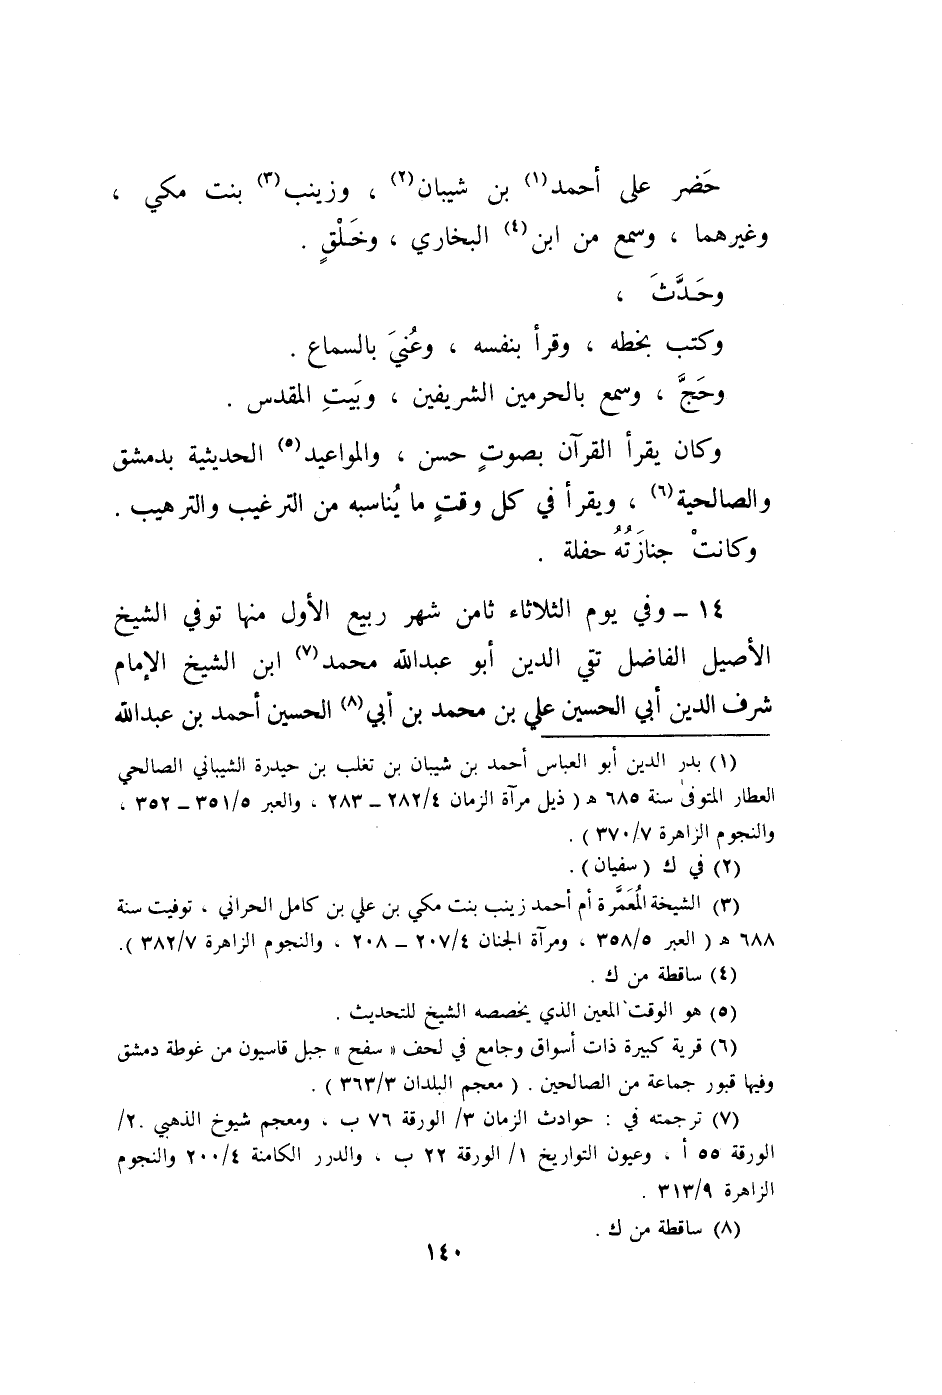 حَضر على أحمد(١) بن شيبان(٢) ، وزينب(٣) بنت مكي ،
وغيرهما ، وسمع من ابن(٤) البخاري ، وخَلْقٍ .
وحَدَّثَ ،
وكتب بخطه ، وقرأ بنفسه ، وعُنيَ بالسماع .
وحَجَّ ، وسمع بالحرمين الشريفين ، وبَيتِ المقدس .
وكان يقرأ القرآن بصوتٍ حسن ، والمواعيد(٥) الحديثية بدمشق
والصالحية(٦) ، ويقرأ في كل وقتٍ ما يُناسبه من الترغيب والترهيب .
وكانتْ جنازَتُهُ حفلة .
١٤ – وفي يوم الثلاثاء ثامن شهر ربيع الأول منها توفي الشيخ
الأصيل الفاضل تقي الدين أبو عبدالله محمد(٧) ابن الشيخ الإمام
شرف الدين أبي الحسين علي بن محمد بن أبي(٨) الحسين أحمد بن عبدالله
(١) بدر الدين أبو العباس أحمد بن شيبان بن تغلب بن حيدرة الشيباني الصالحي
العطار المتوفى سنة ٦٨٥ ه ( ذيل مرآة الزمان ٢٨٢/٤ – ٢٨٣ ، والعبر ٣٥١/٥ – ٣٥٢ ،
والنجوم الزاهرة ٣٧٠/٧ ) .
(٢) في ك ( سفيان ) .
(٣) الشيخة المُعَمَّرة أم أحمد زينب بنت مكي بن علي بن كامل الحراني ، توفيت سنة
٦٨٨ ه ( العبر ٣٥٨/٥ ، ومرآة الجنان ٢٠٧/٤ – ٢٠٨ ، والنجوم الزاهرة ٣٨٢/٧ ).
(٤) ساقطة من ك .
(٥) هو الوقت المعين الذي يخصصه الشيخ للتحديث .
(٦) قرية كبيرة ذات أسواق وجامع في لحف « سفح » جبل قاسيون من غوطة دمشق
وفيها قبور جماعة من الصالحين . ( معجم البلدان ٣٦٣/٣ ) .
(٧) ترجمته في : حوادث الزمان ٣/ الورقة ٧٦ ب ، ومعجم شيوخ الذهبي ٢/
الورقة ٥٥ أ ، وعيون التواريخ ١/ الورقة ٢٢ ب ، والدرر الكامنة ٢٠٠/٤ والنجوم
الزاهرة ٣١٣/٩ .
(٨) ساقطة من ك .
١٤٠